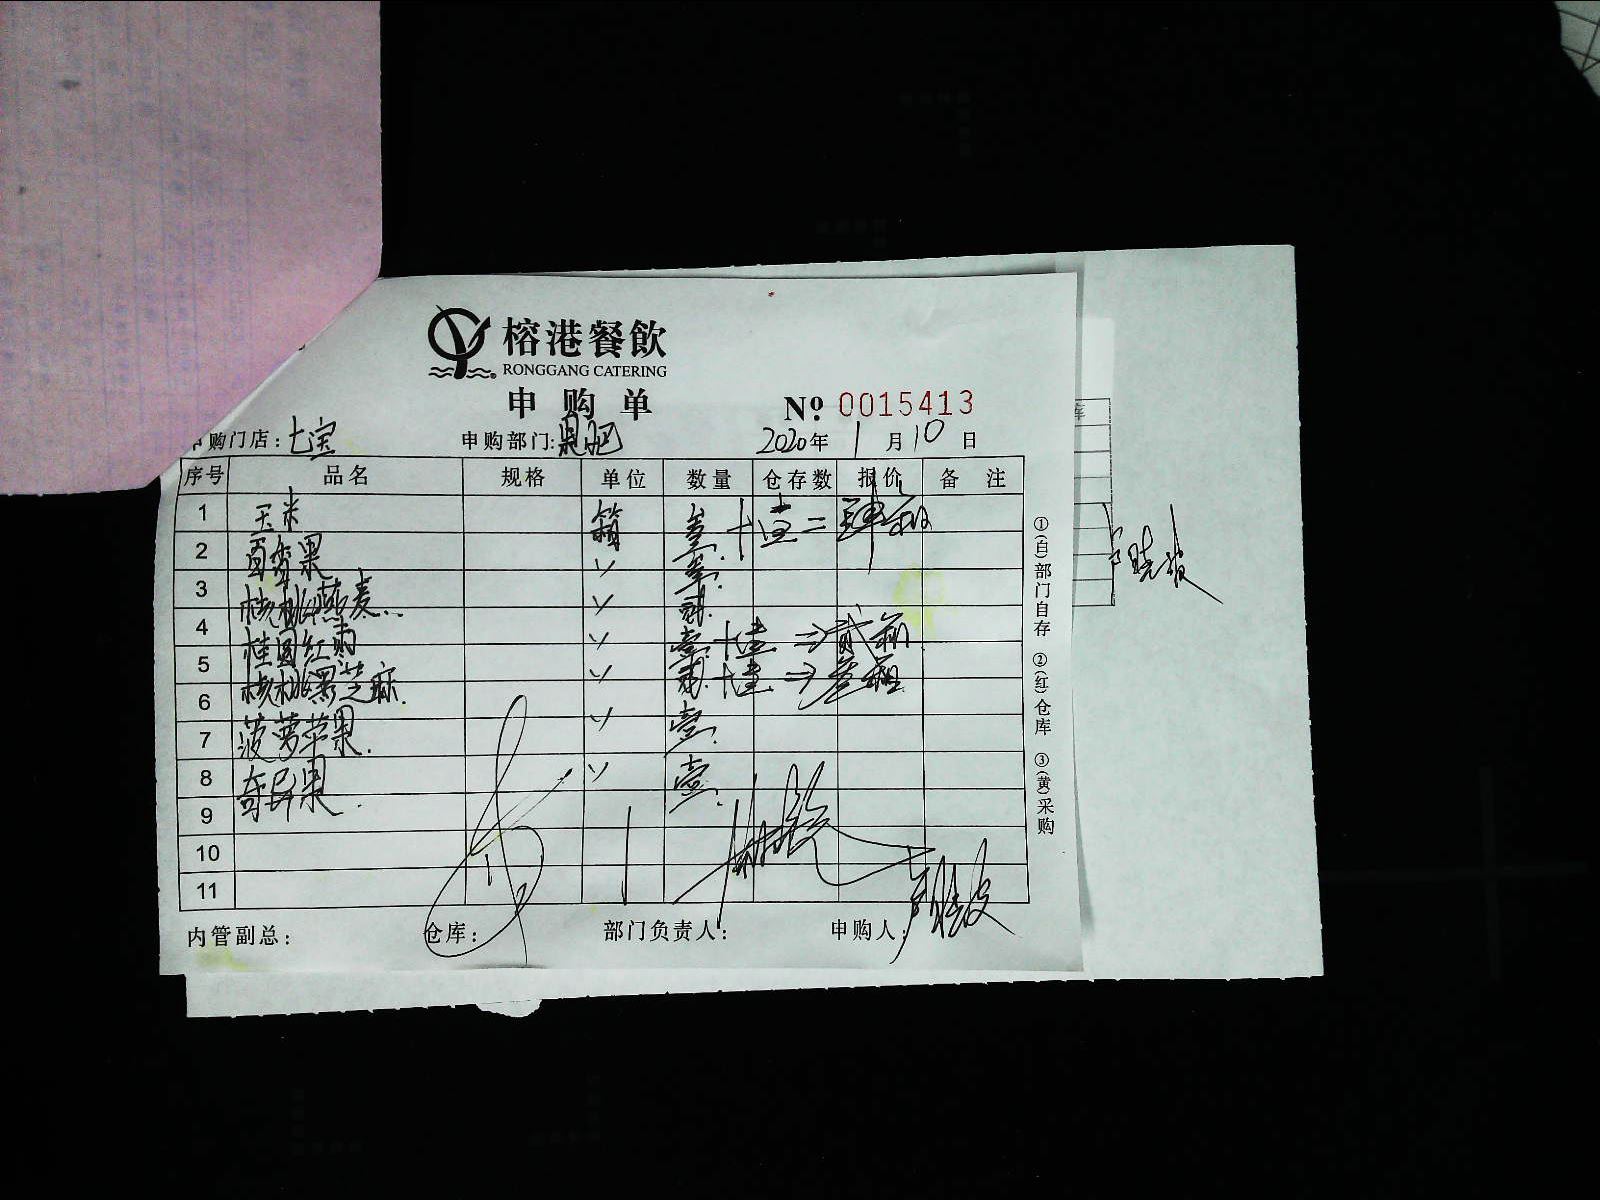 榕港餐飲
RONGGANG CATERING
申购单
№ 0015413
申购门店: 七宝 申购部门: 果吧 2020年 1月10日
序号 品名 规格 单位 数量 仓存数 报价 备注
1 玉米 箱 壹 十壹=
2 百香果 〃 壹.
3 核桃燕麦.. 〃 贰.
4 桂圆红 〃 壹 十壹 ⇒贰箱
5 核桃黑芝麻. 〃 贰. 十壹 ⇒叁箱
6 菠萝苹果. 〃 壹.
7 奇异果. 〃 壹.
8
9
10
11
内管副总: 仓库: 部门负责人: 申购人:
①(白)部门自存 ②(红)仓库 ③(黄)采购